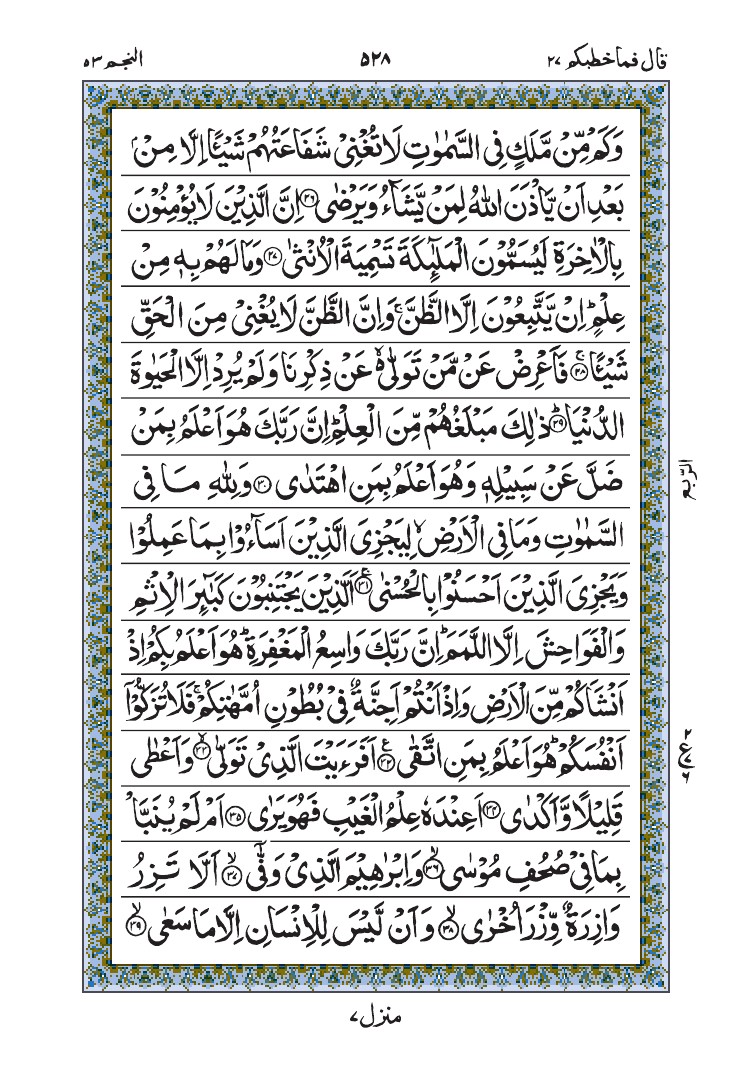 قال فما خطبكم ٢٧
٥٢٨
النجم ٥٣
وَكَمْ مِّنْ مَّلَكٍ فِى السَّمٰوٰتِ لَا تُغْنِىْ شَفَاعَتُهُمْ شَيْـًٔا اِلَّا مِنْۢ
بَعْدِ اَنْ يَّاْذَنَ اللّٰهُ لِمَنْ يَّشَآءُ وَيَرْضٰى ۝٢٦ اِنَّ الَّذِيْنَ لَا يُؤْمِنُوْنَ
بِالْاٰخِرَةِ لَيُسَمُّوْنَ الْمَلٰٓئِكَةَ تَسْمِيَةَ الْاُنْثٰى ۝٢٧ وَمَا لَهُمْ بِهٖ مِنْ
عِلْمٍ ؕ اِنْ يَّتَّبِعُوْنَ اِلَّا الظَّنَّ ۚ وَاِنَّ الظَّنَّ لَا يُغْنِىْ مِنَ الْحَقِّ
شَيْـًٔا ۝٢٨ۚ فَاَعْرِضْ عَنْ مَّنْ تَوَلّٰى ۙ۬ عَنْ ذِكْرِنَا وَلَمْ يُرِدْ اِلَّا الْحَيٰوةَ
الدُّنْيَا ۝٢٩ؕ ذٰلِكَ مَبْلَغُهُمْ مِّنَ الْعِلْمِ ؕ اِنَّ رَبَّكَ هُوَ اَعْلَمُ بِمَنْ
ضَلَّ عَنْ سَبِيْلِهٖ وَهُوَ اَعْلَمُ بِمَنِ اهْتَدٰى ۝٣٠ وَلِلّٰهِ مَا فِى
السَّمٰوٰتِ وَمَا فِى الْاَرْضِ ۙ لِيَجْزِىَ الَّذِيْنَ اَسَآءُوْا بِمَا عَمِلُوْا
وَيَجْزِىَ الَّذِيْنَ اَحْسَنُوْا بِالْحُسْنٰى ۝٣١ۚ اَلَّذِيْنَ يَجْتَنِبُوْنَ كَبٰٓئِرَ الْاِثْمِ
وَالْفَوَاحِشَ اِلَّا اللَّمَمَ ؕ اِنَّ رَبَّكَ وَاسِعُ الْمَغْفِرَةِ ؕ هُوَ اَعْلَمُ بِكُمْ اِذْ
اَنْشَاَكُمْ مِّنَ الْاَرْضِ وَاِذْ اَنْتُمْ اَجِنَّةٌ فِىْ بُطُوْنِ اُمَّهٰتِكُمْ ۚ فَلَا تُزَكُّوْۤا
اَنْفُسَكُمْ ؕ هُوَ اَعْلَمُ بِمَنِ اتَّقٰى ۝٣٢ۧ اَفَرَءَيْتَ الَّذِىْ تَوَلّٰى ۝٣٣ۙ وَاَعْطٰى
قَلِيْلًا وَّاَكْدٰى ۝٣٤ اَعِنْدَهٗ عِلْمُ الْغَيْبِ فَهُوَ يَرٰى ۝٣٥ اَمْ لَمْ يُنَبَّاْ
بِمَا فِىْ صُحُفِ مُوْسٰى ۝٣٦ۙ وَاِبْرٰهِيْمَ الَّذِىْ وَفّٰىٓ ۝٣٧ۙ اَلَّا تَزِرُ
وَازِرَةٌ وِّزْرَ اُخْرٰى ۝٣٨ۙ وَاَنْ لَّيْسَ لِلْاِنْسَانِ اِلَّا مَا سَعٰى ۝٣٩ۙ
الربع
ع
منزل ٧